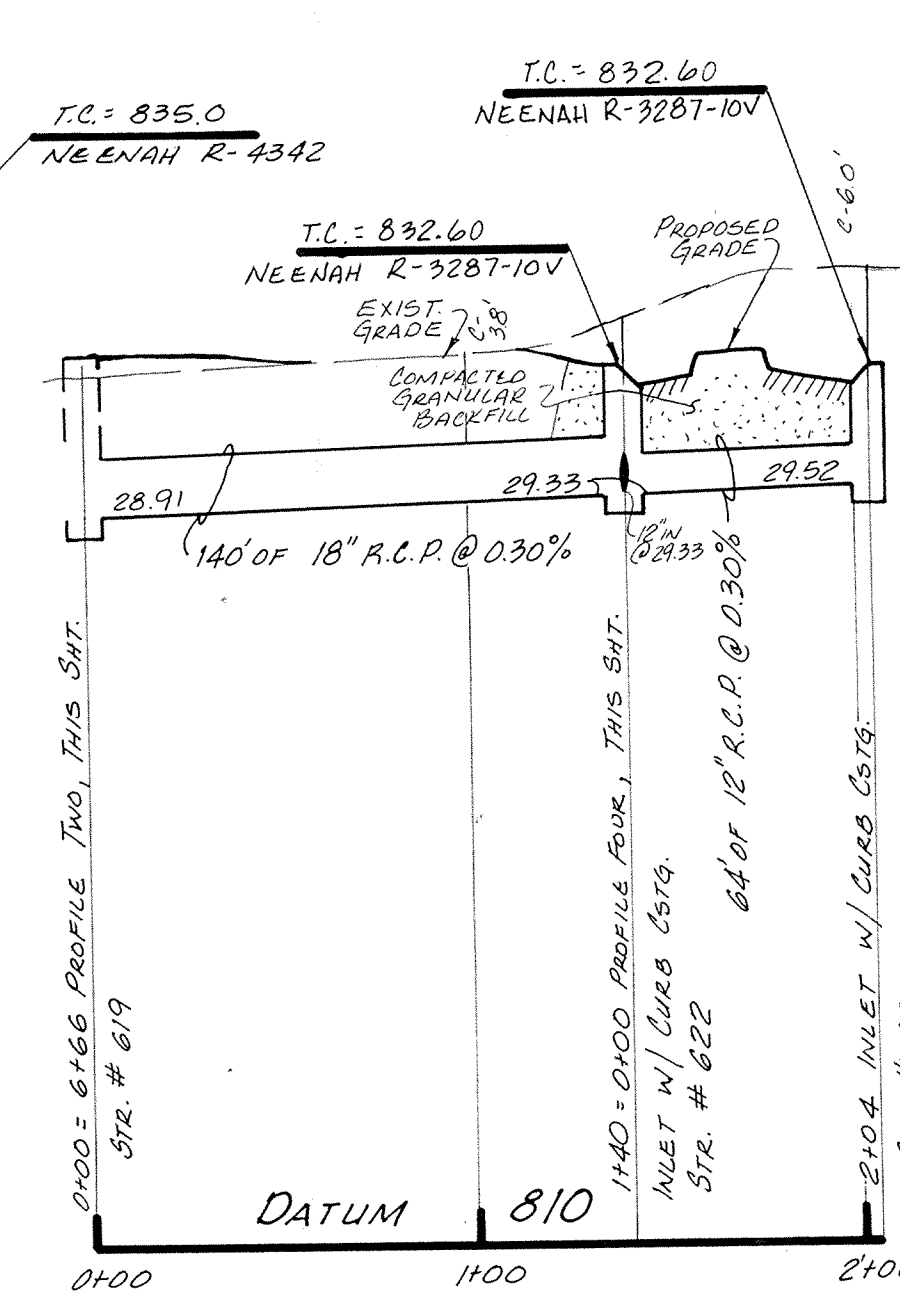 T.C. = 832.60
NEENAH R-3287-10V
T.C. = 835.0
NEENAH R-4342
C-6.0'
T.C. = 832.60
NEENAH R-3287-10V
PROPOSED
GRADE
EXIST.
GRADE
C-
3.8'
COMPACTED
GRANULAR
BACKFILL
28.91
29.33
29.52
12" IN
@ 29.33
140' OF 18" R.C.P. @ 0.30%
64' OF 12" R.C.P. @ 0.30%
0+00 = 6+66 PROFILE TWO, THIS SHT.
STR. # 619
1+40 = 0+00 PROFILE FOUR, THIS SHT.
INLET W/ CURB CSTG.
STR. # 622
2+04 INLET W/ CURB CSTG.
DATUM 810
0+00
1+00